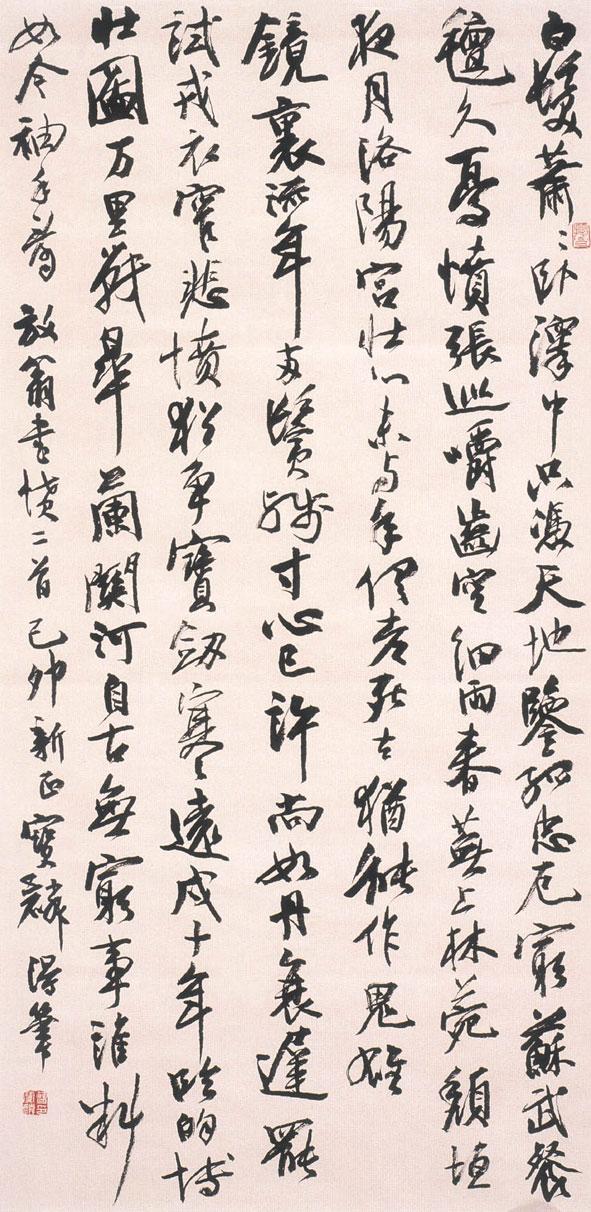 白髮蕭々臥澤中只憑天地鑒孤忠厄窮蘇武餐
氈久憂憤張巡嚼齒空細雨春蕪上林菀頹垣
夜月洛陽宮壯心未與年俱老死去猶能作鬼雄
鏡裏流年两鬢殘寸心已許尚如丹衰遲罷
試戎衣窄悲憤猶爭寶劍寒遠戍十年臨的博
壯圖万里戰皋蘭關河自古無窮事誰料
如今袖手看 放翁書憤二首 己卯新正 寶麟得筆